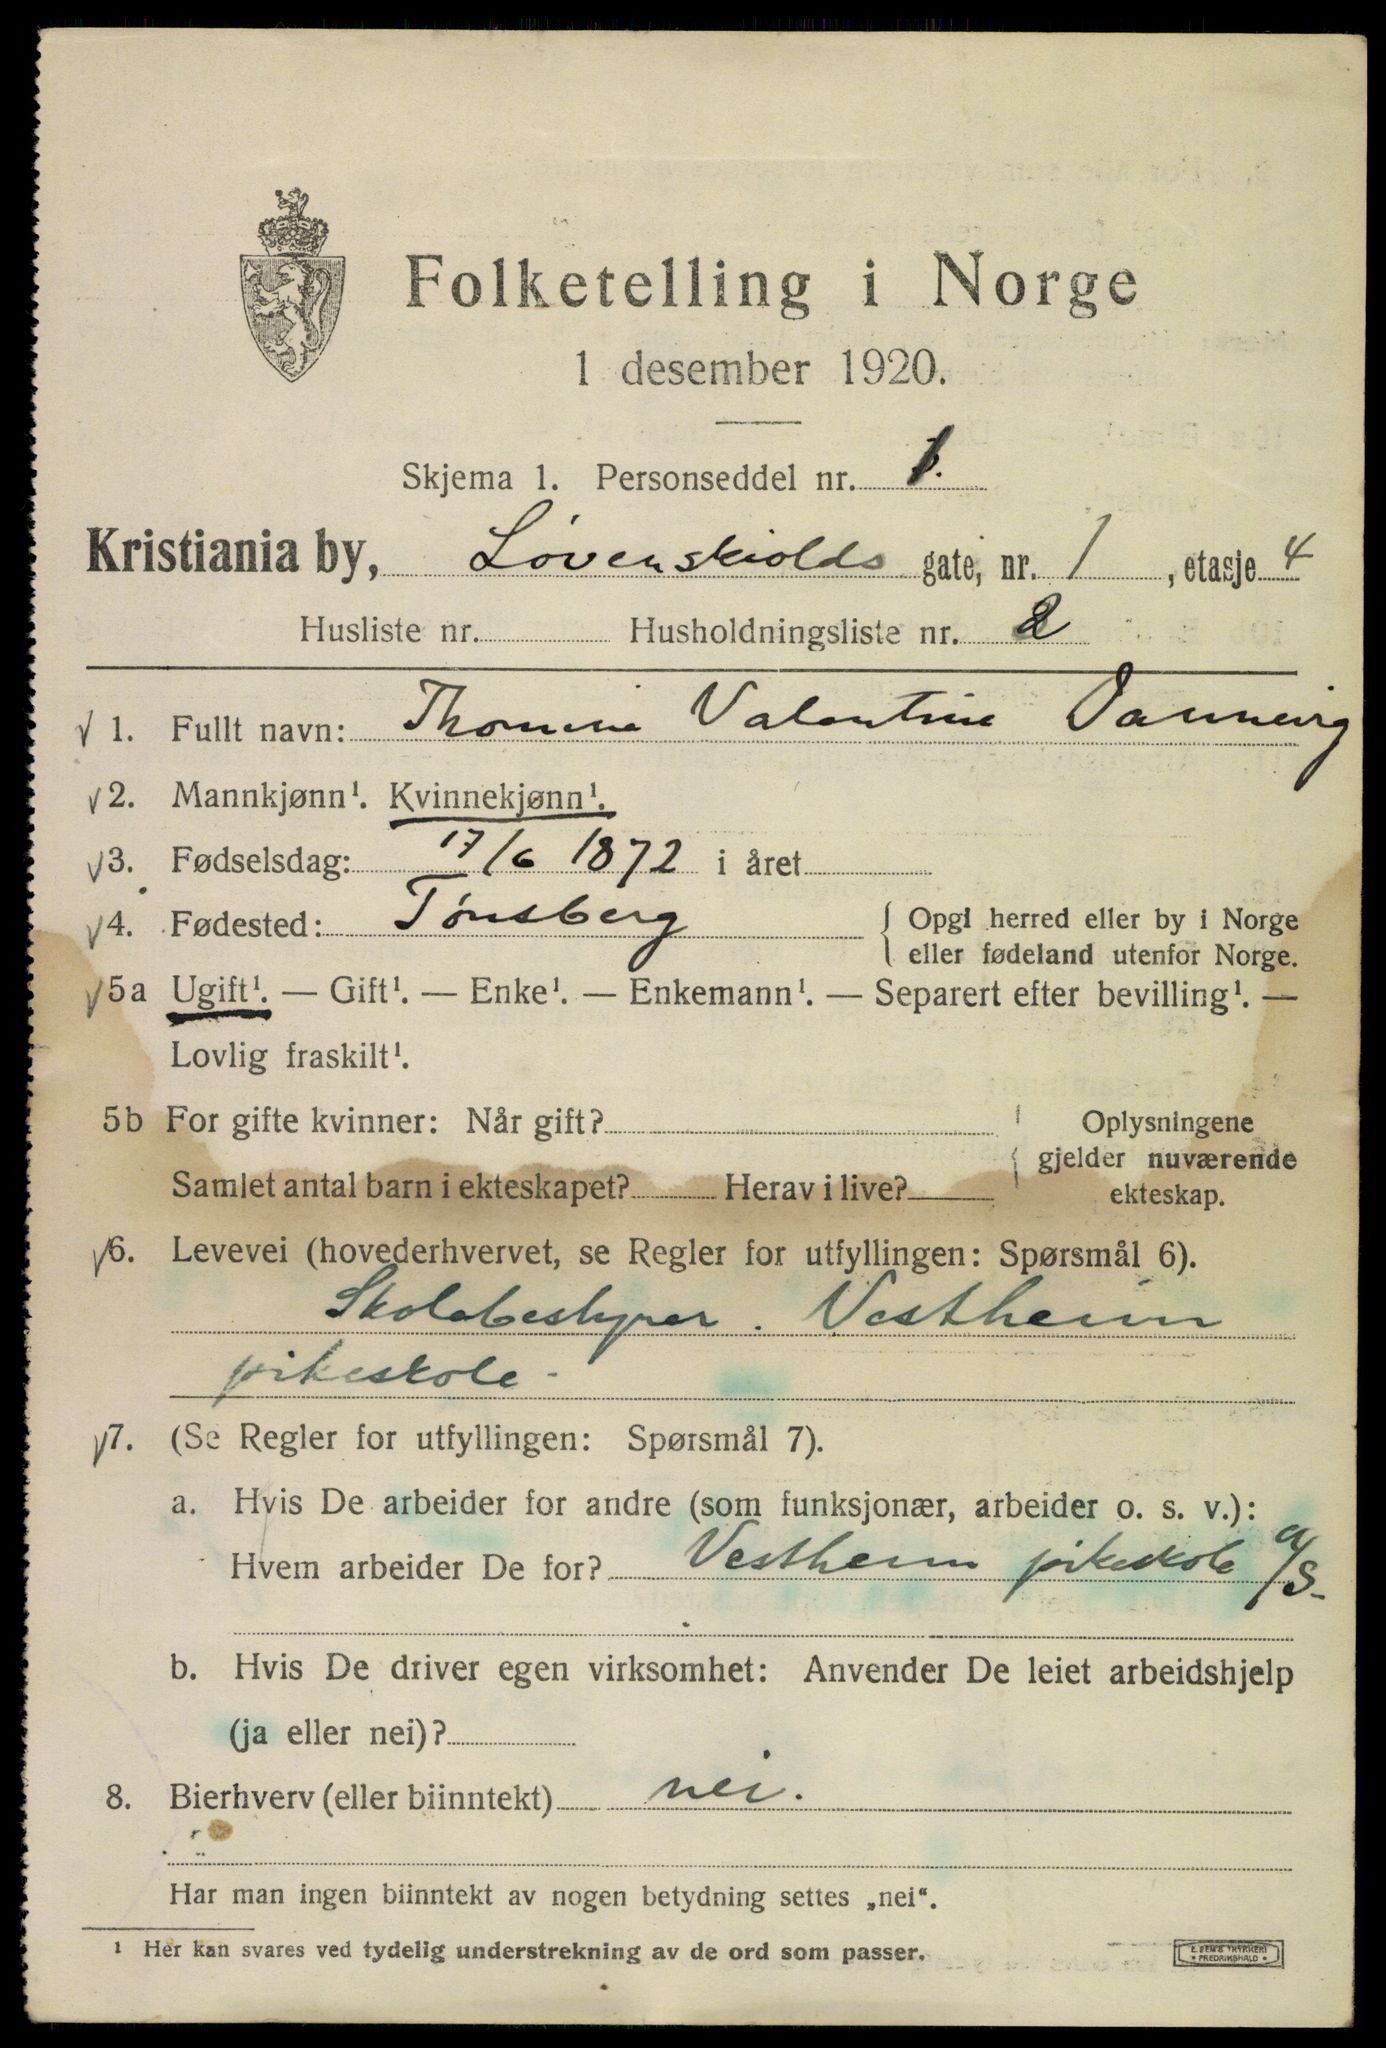 Folketelling i Norge
1 desember 1920.
Skjema 1. Personseddel nr. 1.
Kristiania by, Løvenskiolds gate, nr. 1, etasje 4
Husliste nr. Husholdningsliste nr. 2
√ 1. Fullt navn: Thomine Valentine Dannevig
√ 2. Mannkjønn¹. Kvinnekjønn¹.
√ 3. Fødselsdag: 17/6 1872 i året
√ 4. Fødested: Tønsberg { Opgi herred eller by i Norge
eller fødeland utenfor Norge.
√ 5a Ugift¹. — Gift¹. — Enke¹. — Enkemann¹. — Separert efter bevilling¹. —
Lovlig fraskilt¹.
5b For gifte kvinner: Når gift? { Oplysningene
gjelder nuværende
Samlet antal barn i ekteskapet? Herav i live? ekteskap.
√ 6. Levevei (hovederhvervet, se Regler for utfyllingen: Spørsmål 6).
Skolebestyrer. Vestheim
pikeskole -
√ 7. (Se Regler for utfyllingen: Spørsmål 7).
a. Hvis De arbeider for andre (som funksjonær, arbeider o. s. v.):
Hvem arbeider De for? Vestheim pikeskole a/s-
b. Hvis De driver egen virksomhet: Anvender De leiet arbeidshjelp
(ja eller nei)?
8. Bierhverv (eller biinntekt) nei.
Har man ingen biinntekt av nogen betydning settes „nei“.
¹ Her kan svares ved tydelig understrekning av de ord som passer.
E. SEM'S TRYKKERI
* FREDRIKSHALD *